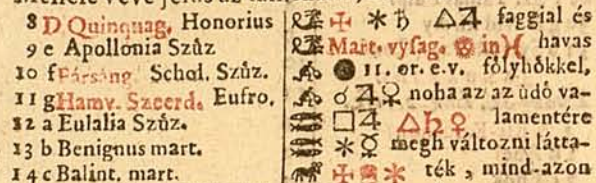 8 D Quinquag. Honorius
9 e Apollonia Szűz
10 f Fársáng. Schol. Szűz.
11 g Hamv. Szeerd. Eufro.
12 a Eulalia Szűz.
13 b Benignus mart.
14 c Balint. mart.
✠ ✶ ♄ △ ♃ faggial és
Mart. vysag. in ♓ havas
● 11. or. e.v. fólyhókkel,
☌ ♃ ♀ noha az az üdó va-
□ ♃ △ ♄ ♀ lamentére
✶ ☿ megh változni látta-
✠ ✶ ték, mind-azon